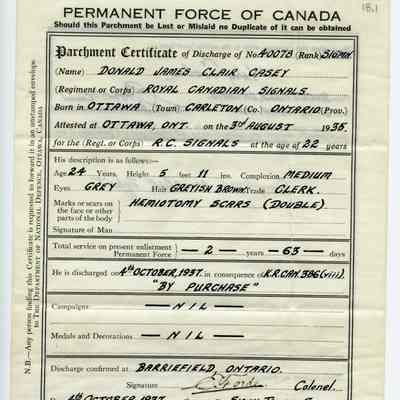 18.1
PERMANENT FORCE OF CANADA
Should this Parchment be Lost or Mislaid no Duplicate of it can be obtained
Parchment Certificate of Discharge of No. 40078 (Rank) SIGMN.
(Name) DONALD JAMES CLAIR CASEY
(Regiment or Corps) ROYAL CANADIAN SIGNALS.
Born in OTTAWA (Town) CARLETON (Co.) ONTARIO (Prov.)
Attested at OTTAWA, ONT. on the 3rd AUGUST 1935.
for the (Regt. or Corps) R.C. SIGNALS at the age of 22 years
His description is as follows:—
Age 24 Years, Height 5 feet 11 ins. Complexion MEDIUM
Eyes GREY Hair GREYISH BROWN Trade CLERK.
Marks or scars on the face or other parts of the body HEMIOTOMY SCARS (DOUBLE).
Signature of Man
Total service on present enlistment Permanent Force — 2 — years — 63 — days
He is discharged on 4th OCTOBER, 1937. in consequence of K.R. CAN. 386 (viii).
"BY PURCHASE"
Campaigns — NIL —
Medals and Decorations — NIL —
Discharge confirmed at BARRIEFIELD, ONTARIO.
Signature E. Forde Colonel
4th OCTOBER, 1937
N.B.—Any person finding this Certificate is requested to forward it in an unstamped envelope
to THE DEPARTMENT OF NATIONAL DEFENCE, OTTAWA, CANADA